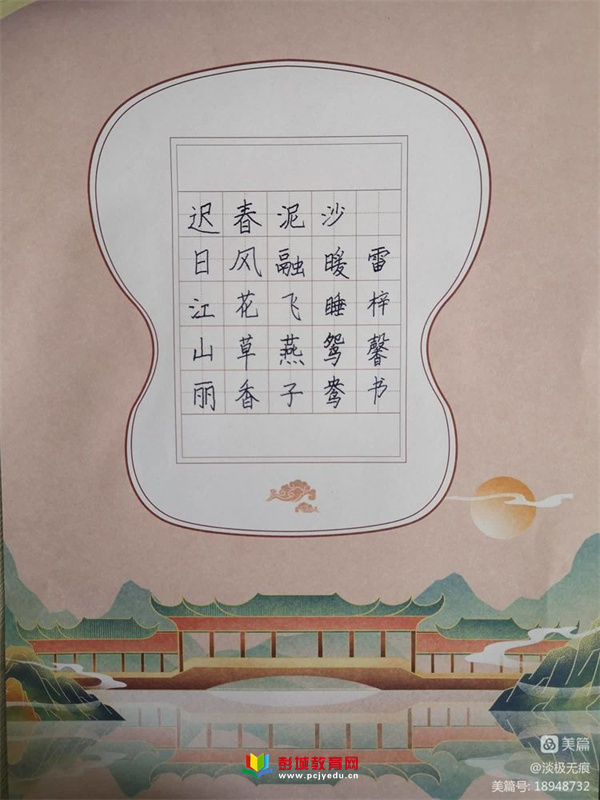 迟日江山丽
春风花草香
泥融飞燕子
沙暖睡鸳鸯
雷梓馨书
彭城教育网
www.pcjyedu.cn
美篇
@淡极无痕
美篇号: 18948732